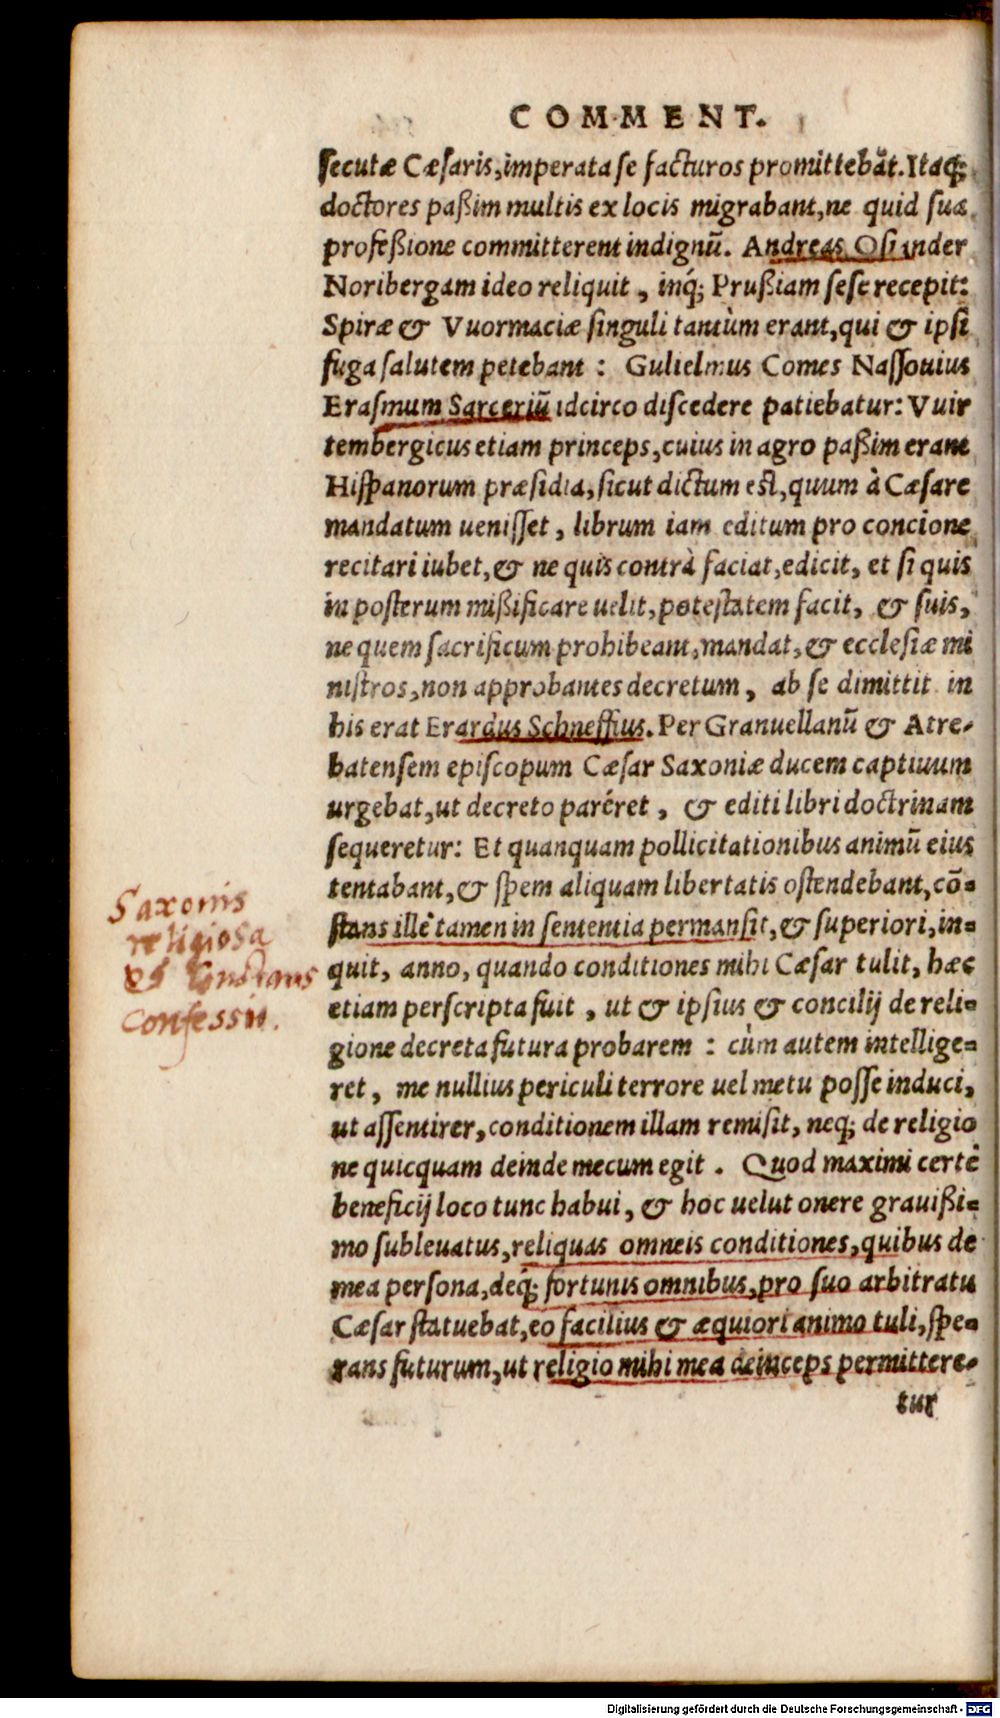 COMMENT.
secutæ Cæsaris, imperata se facturos promittebãt. Itaq;
doctores paßim multis ex locis migrabant, ne quid sua
profeßione committerent indignũ. Andreas Osiander
Noribergam ideo reliquit, inq́; Prußiam sese recepit:
Spiræ & Vuormaciæ singuli tantùm erant, qui & ipsi
fuga salutem petebant : Gulielmus Comes Nassouius
Erasmum Sarceriũ idcirco discedere patiebatur: Vuir
tembergicus etiam princeps, cuius in agro paßim erant
Hispanorum præsidia, sicut dictum est, quum à Cæsare
mandatum uenisset, librum iam editum pro concione
recitari iubet, & ne quis contrà faciat, edicit, et si quis
in posterum mißificare uelit, potestatem facit, & suis,
ne quem sacrificum prohibeant, mandat, & ecclesiæ mi
nistros, non approbantes decretum, ab se dimittit in
his erat Erardus Schneffius. Per Granuellanũ & Atre-
batensem episcopum Cæsar Saxoniæ ducem captiuum
urgebat, ut decreto paréret, & editi libri doctrinam
sequeretur: Et quanquam pollicitationibus animũ eius
tentabant, & spem aliquam libertatis ostendebant, cō=
stans ille tamen in sententia permansit, & superiori, in=
quit, anno, quando conditiones mihi Cæsar tulit, hæc
etiam perscripta fuit, ut & ipsius & concilij de reli=
gione decreta futura probarem : cùm autem intellige=
ret, me nullius periculi terrore uel metu posse induci,
ut assentirer, conditionem illam remisit, neq; de religio
ne quicquam deinde mecum egit. Quod maximi certè
beneficij loco tunc habui, & hoc uelut onere grauißi=
mo subleuatus, reliquas omneis conditiones, quibus de
mea persona, deq́; fortunis omnibus, pro suo arbitratu
Cæsar statuebat, eo facilius & æquiori animo tuli, spe=
rans futurum, ut religio mihi mea deinceps permittere-
tur
Saxonis
religiosa
et Constans
Confessio.
Digitalisierung gefördert durch die Deutsche Forschungsgemeinschaft - DFG